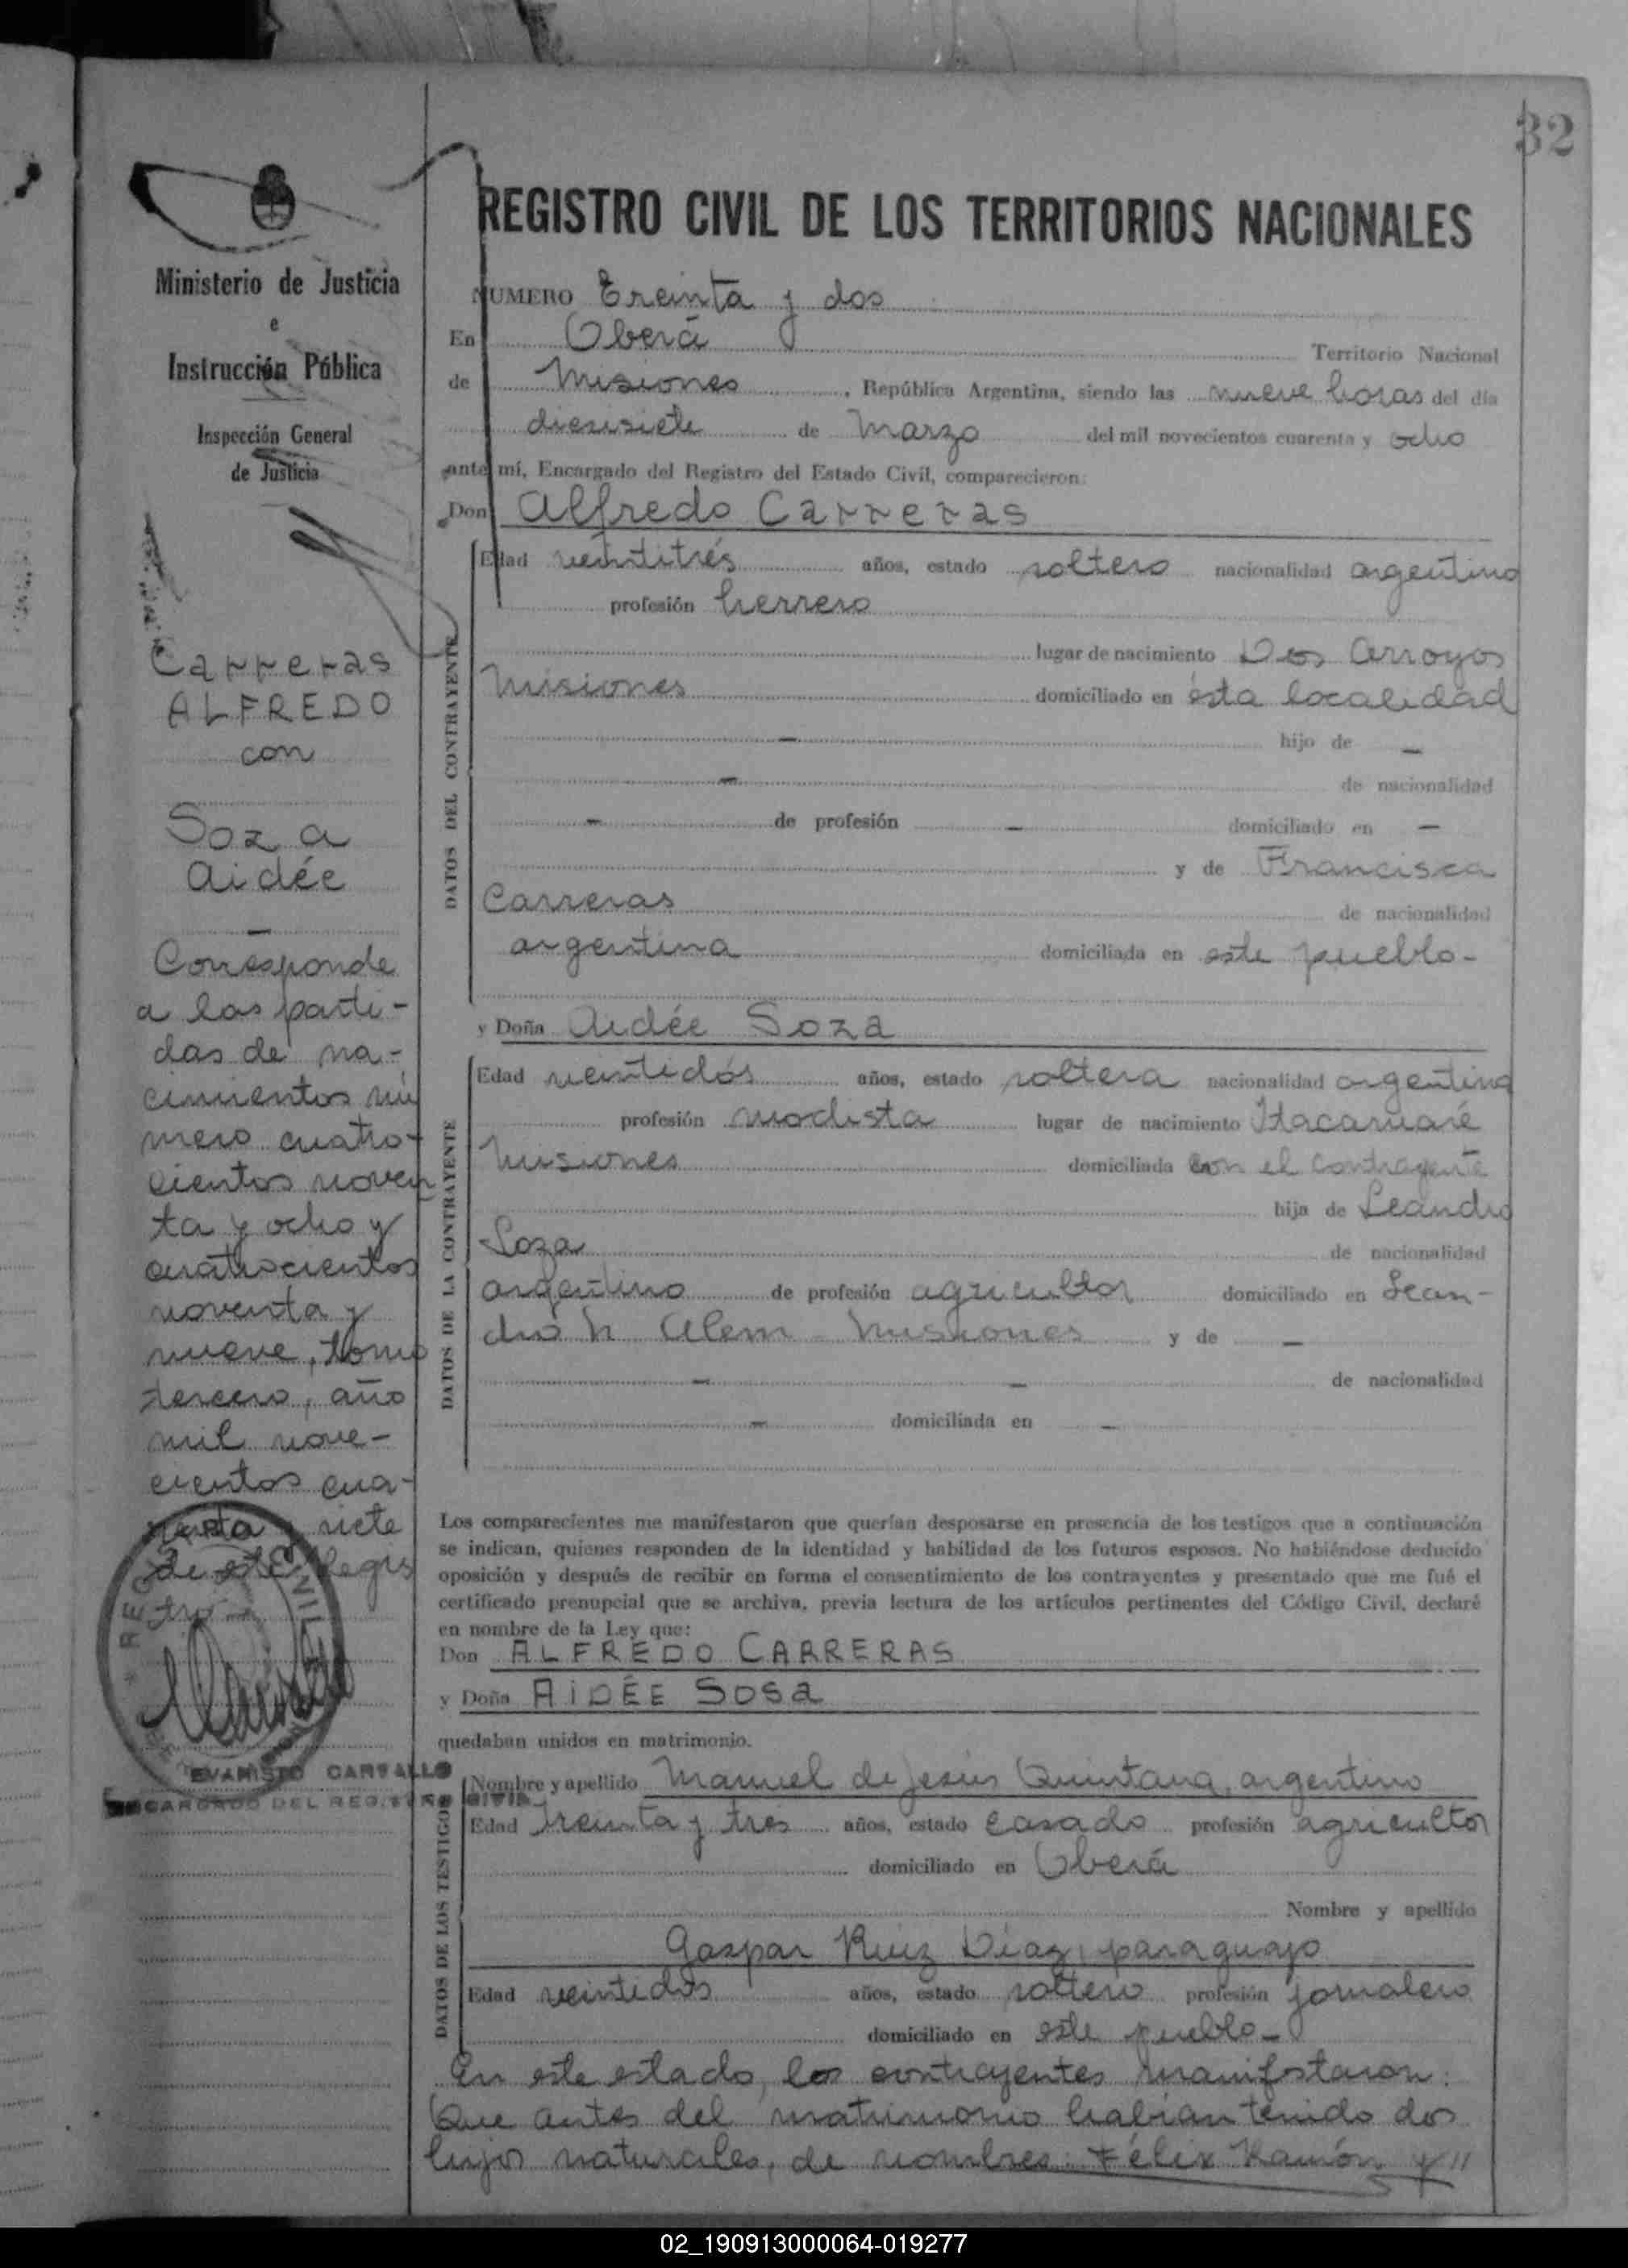 32
Ministerio de Justicia
e
Instrucción Pública
Inspección General
de Justicia
Carreras
ALFREDO
con
Soza
Aidée
Corresponde
a las parti-
das de na-
cimientos nú
mero cuatro-
cientos noven
ta y ocho y
cuatrocientos
noventa y
nueve, tomo
tercero, año
mil nove-
cientos cua-
renta y siete
de este Regis
tro
EVARISTO CARVALLO
ENCARGADO DEL REGISTRO CIVIL
REGISTRO CIVIL DE LOS TERRITORIOS NACIONALES
NUMERO Treinta y dos
En Oberá Territorio Nacional
de Misiones, República Argentina, siendo las nueve horas del día
diesisiete de Marzo del mil novecientos cuarenta y ocho
ante mí, Encargado del Registro del Estado Civil, comparecieron:
Don Alfredo Carreras
DATOS DEL CONTRAYENTE
Edad veintitrés años, estado soltero nacionalidad argentino
profesión herrero
lugar de nacimiento Dos Arroyos
Misiones domiciliado en ésta localidad
- hijo de -
- de nacionalidad
- de profesión - domiciliado en -
y de Francisca
Carreras de nacionalidad
argentina domiciliada en este pueblo-
y Doña Aidée Soza
DATOS DE LA CONTRAYENTE
Edad veintidós años, estado soltera nacionalidad argentina
profesión modista lugar de nacimiento Itacaruaré
Misiones domiciliada con el contrayente
hija de Leandro
Soza de nacionalidad
argentino de profesión agricultor domiciliado en Lean-
dro N Alem - Misiones y de -
- - de nacionalidad
- domiciliada en -
Los comparecientes me manifestaron que querían desposarse en presencia de los testigos que a continuación
se indican, quienes responden de la identidad y habilidad de los futuros esposos. No habiéndose deducido
oposición y después de recibir en forma el consentimiento de los contrayentes y presentado que me fué el
certificado prenupcial que se archiva, previa lectura de los artículos pertinentes del Código Civil, declaré
en nombre de la Ley que:
Don ALFREDO CARRERAS
y Doña AIDÉE SOSA
quedaban unidos en matrimonio.
DATOS DE LOS TESTIGOS
Nombre y apellido Manuel de Jesús Quintana, argentino
Edad treinta y tres años, estado casado profesión agricultor
domiciliado en Oberá
Nombre y apellido
Gaspar Ruiz Díaz, paraguayo
Edad veintidos años, estado soltero profesión jornalero
domiciliado en este pueblo-
En este estado, los contrayentes manifestaron:
Que antes del matrimonio habían tenido dos
hijos naturales, de nombres: Félix Ramón y "
02_190913000064-019277